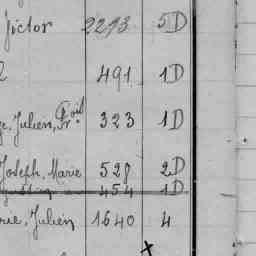 Victor 2293 5D
491 1D
Julien, 323 1D
Joseph, Marie 528 2D
454 1D
rie, Julien 1640 4
x